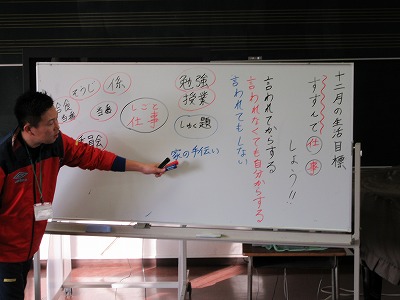 十二月の生活目標
すすんで仕事
しよう!!
言われてからする
言われなくても自分からする
言われてもしない
勉強
授業
しゅく題
家の手伝い
しごと
仕事
係
そうじ
給食
当番
委員会